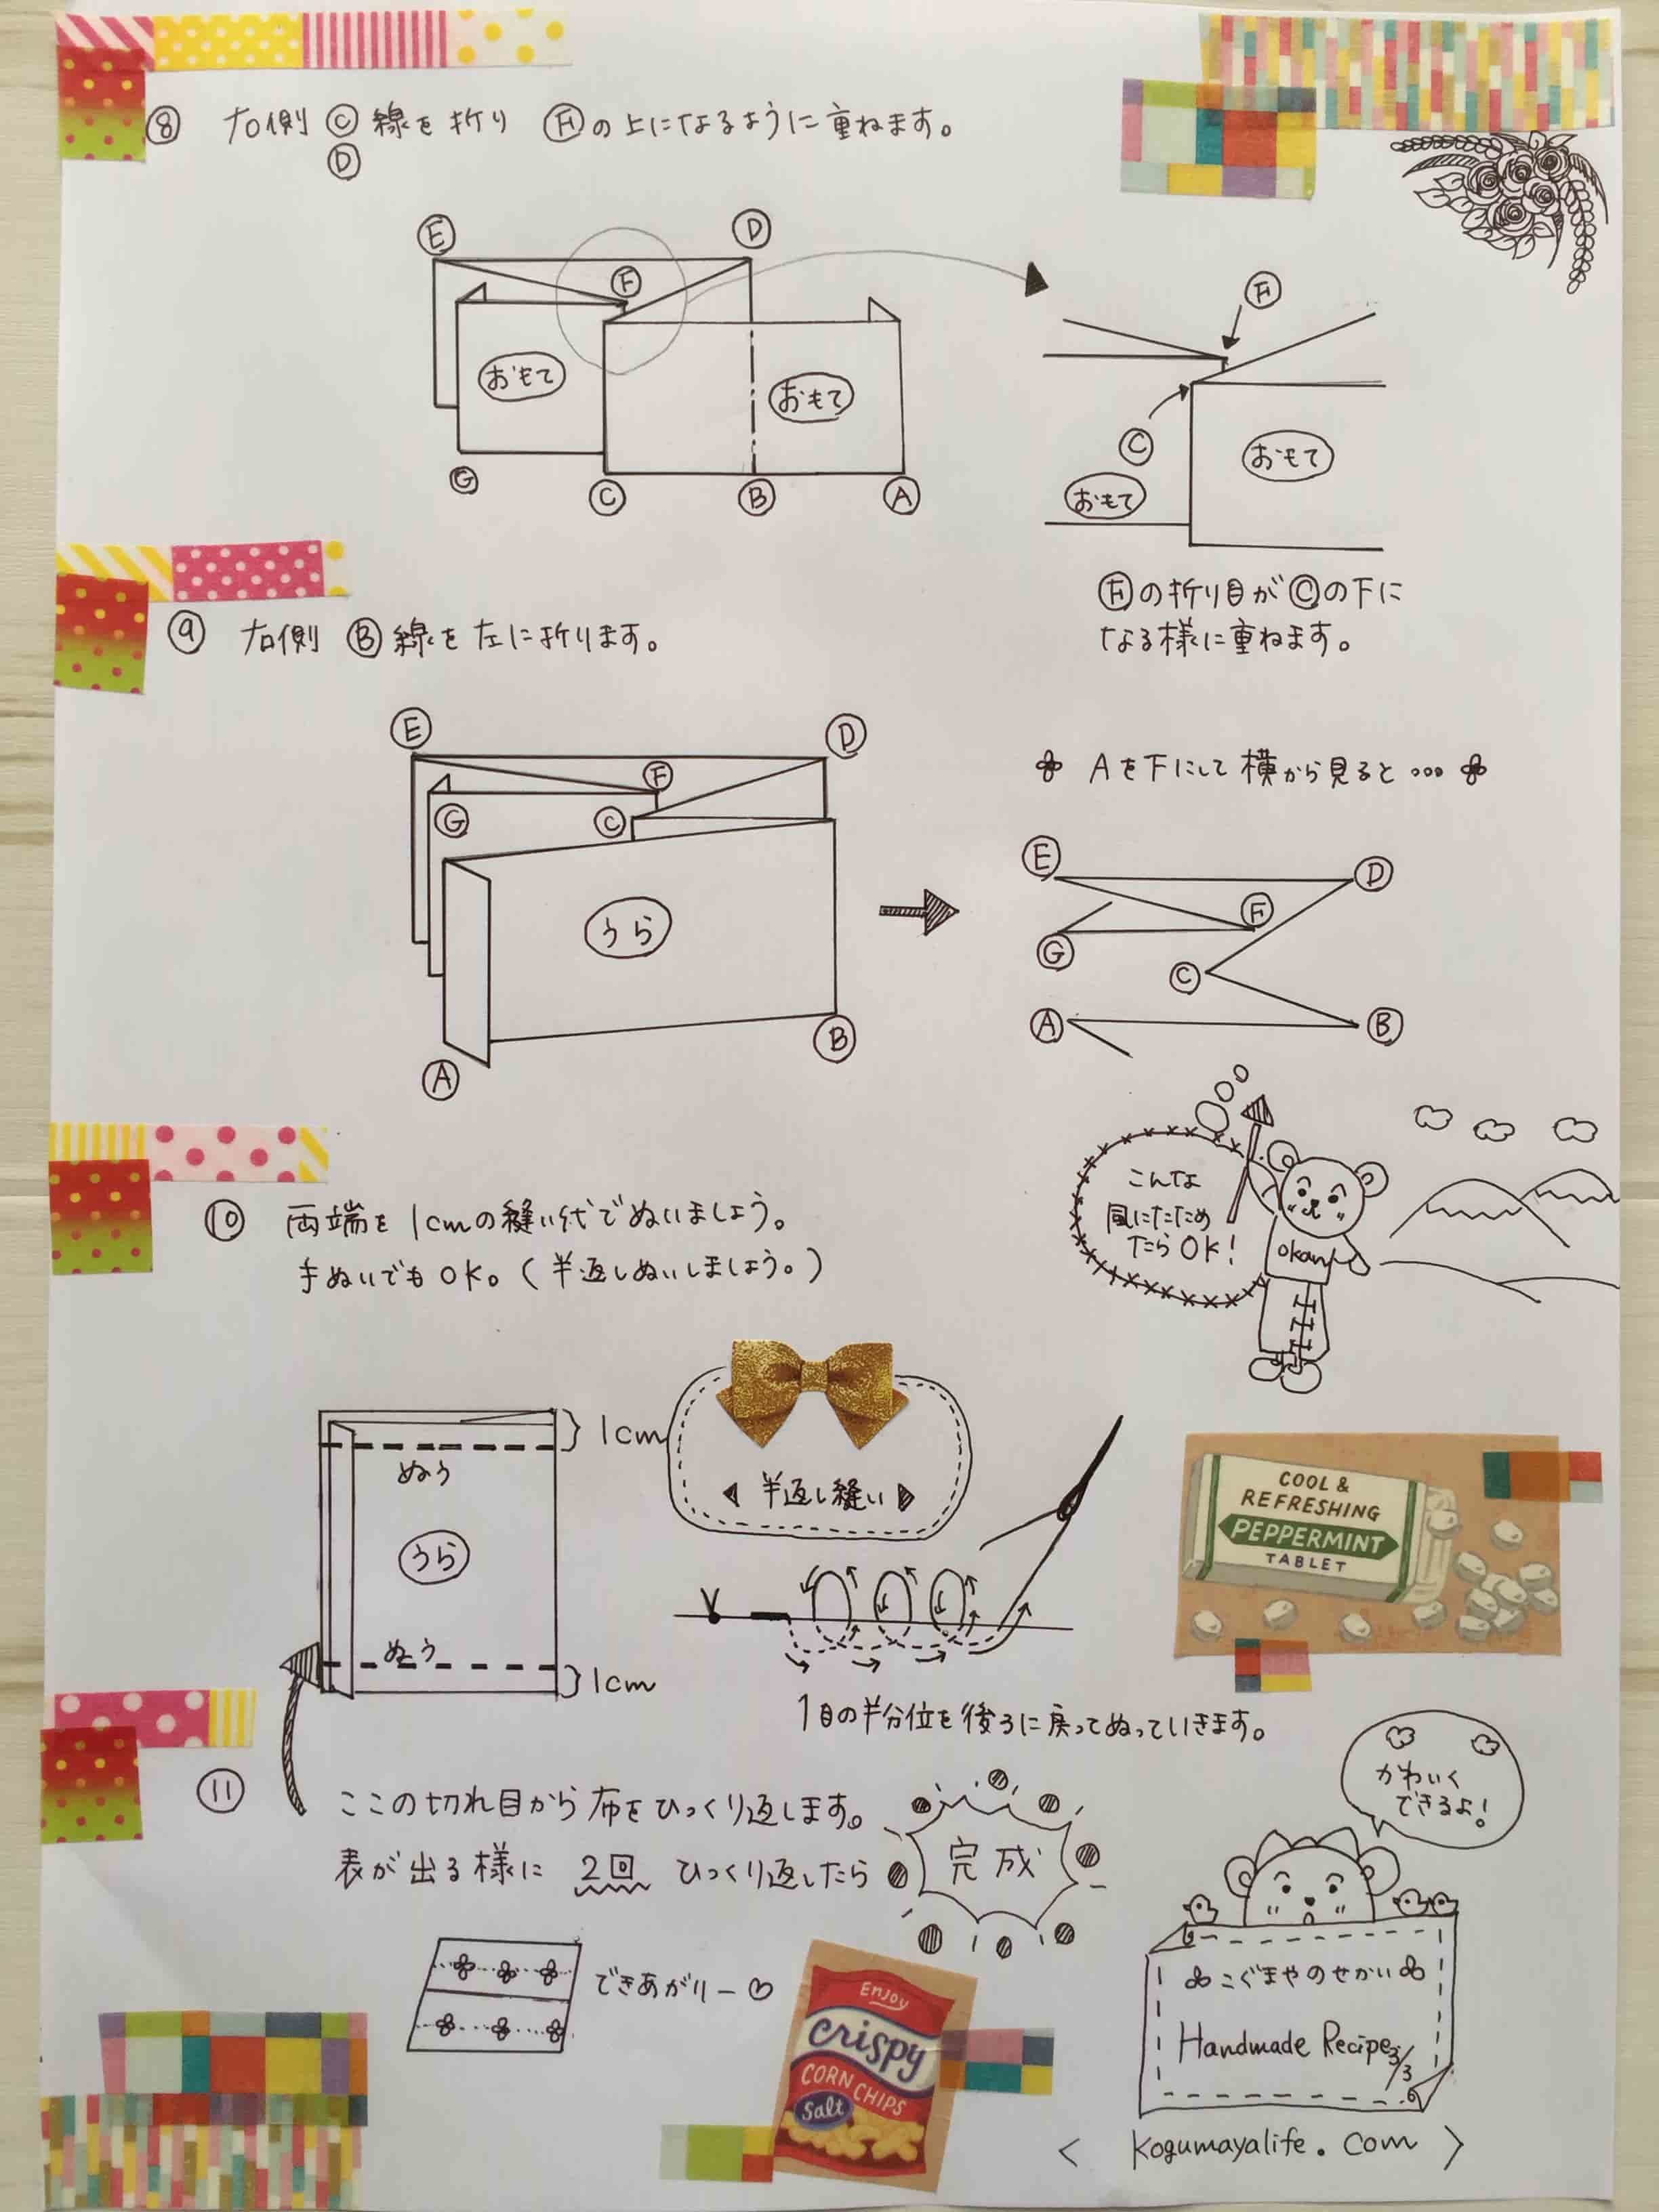 ⑧ 右側 Ⓒ 線を折り Ⓕの上になるように重ねます。
Ⓓ
Ⓔ Ⓓ
Ⓕ
おもて おもて
Ⓖ Ⓒ Ⓑ Ⓐ
Ⓕ
Ⓒ おもて
おもて
Ⓕの折り目がⒸの下に
なる様に重ねます。
⑨ 右側 Ⓑ線を左に折ります。
Ⓔ Ⓓ
Ⓕ
Ⓖ Ⓒ
うら
Ⓑ
Ⓐ
Aを下にして横から見ると…
Ⓔ Ⓓ
Ⓕ
Ⓖ
Ⓒ
Ⓐ Ⓑ
こんな
風にたため
たらOK!
okan
⑩ 両端を1cmの縫い代でぬいましょう。
手ぬいでもOK。(半返しぬいしましょう。)
1cm
ぬう
うら
ぬう
1cm
半返し縫い
1目の半分位を後ろに戻ってぬっていきます。
COOL &
REFRESHING
PEPPERMINT
TABLET
⑪ ここの切れ目から布をひっくり返します。
表が出る様に 2回 ひっくり返したら
完成
できあがりー♡
かわいく
できるよ!
ENJOY
crispy
CORN CHIPS
Salt
こぐまやのせかい
Handmade Recipe 3/3
< kogumayalife.com >